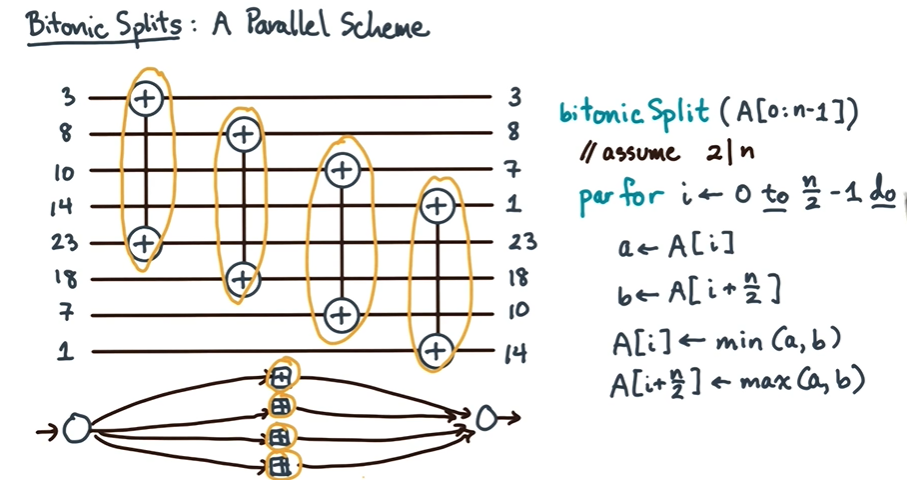 Bitonic Splits: A Parallel Scheme
3 3
8 8
10 7
14 1
23 23
18 18
7 10
1 14
bitonicSplit (A[0:n-1])
// assume 2|n
par for i ← 0 to n/2 -1 do
a ← A[i]
b ← A[i+n/2]
A[i] ← min (a,b)
A[i+n/2] ← max (a,b)